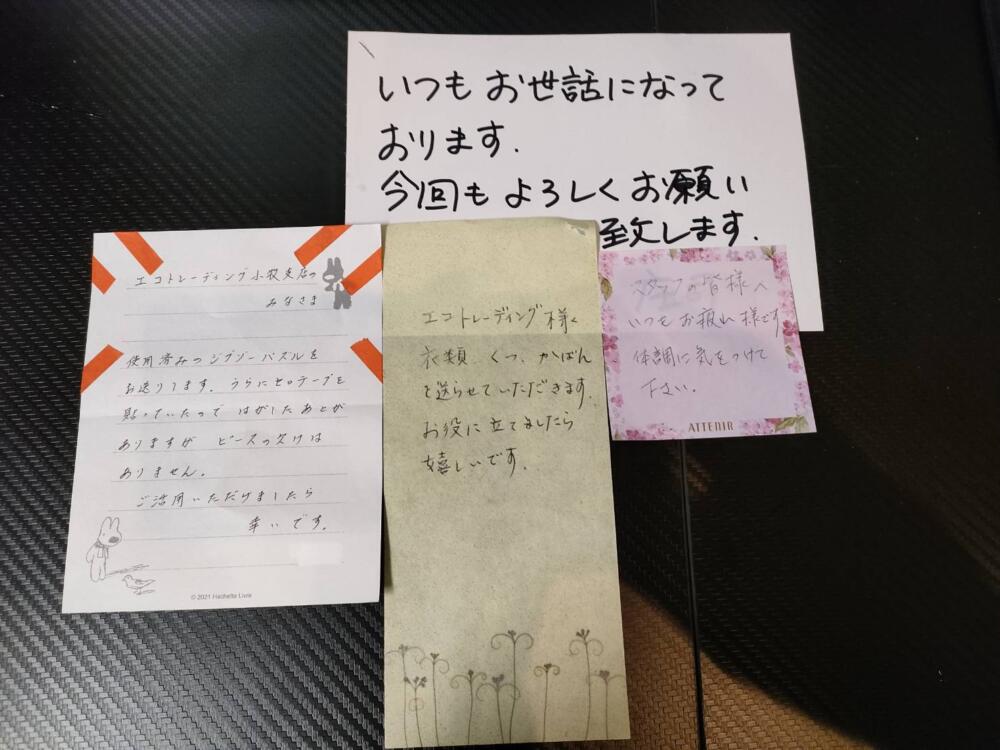 いつもお世話になって
おります.
今回もよろしくお願い
致します.
エコトレーディング小牧支店の
みなさま
使用済みのジグソーパズルを
お送りします。うらにセロテープを
貼っていたので はがしたあとが
ありますが ピースの欠けは
ありません。
ご活用いただけましたら
幸いです。
© 2021 Hachette Livre
エコトレーディング様へ
衣類、くつ、かばん
を送らせていただきます.
お役に立てましたら
嬉しいです.
スタッフの皆様へ
いつもお疲れ様です
体調に気をつけて
下さい.
ATTENIR